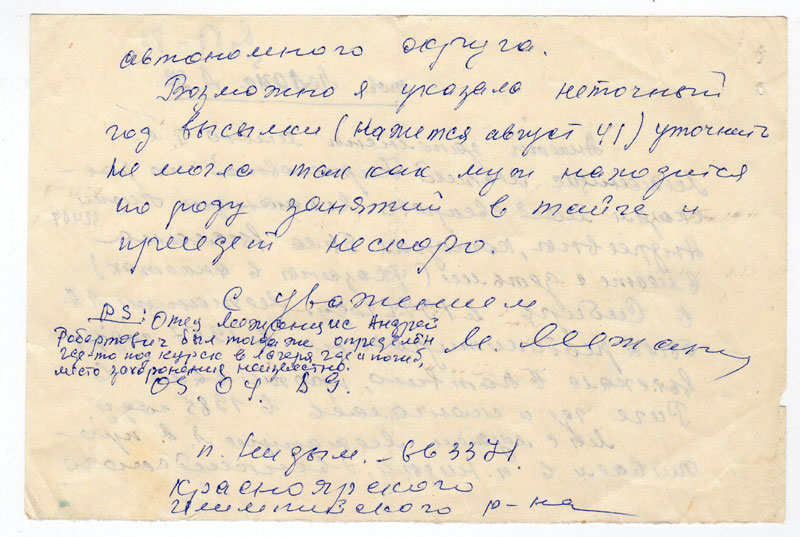 автономного округа.
Возможно я указала неточный
год высылки (кажется август 41) уточнить
не могла так как муж находится
по роду занятий в тайге и
приедет нескоро.
С уважением
М. Межанц
PS: Отец Межанцис Андрей
Робертович был тогда же определён
где-то под Курск в лагеря где и погиб,
место захоронения неизвестно.
05 04. 89.
п. Нидым. 663371.
Красноярского
Илимпийского р-на